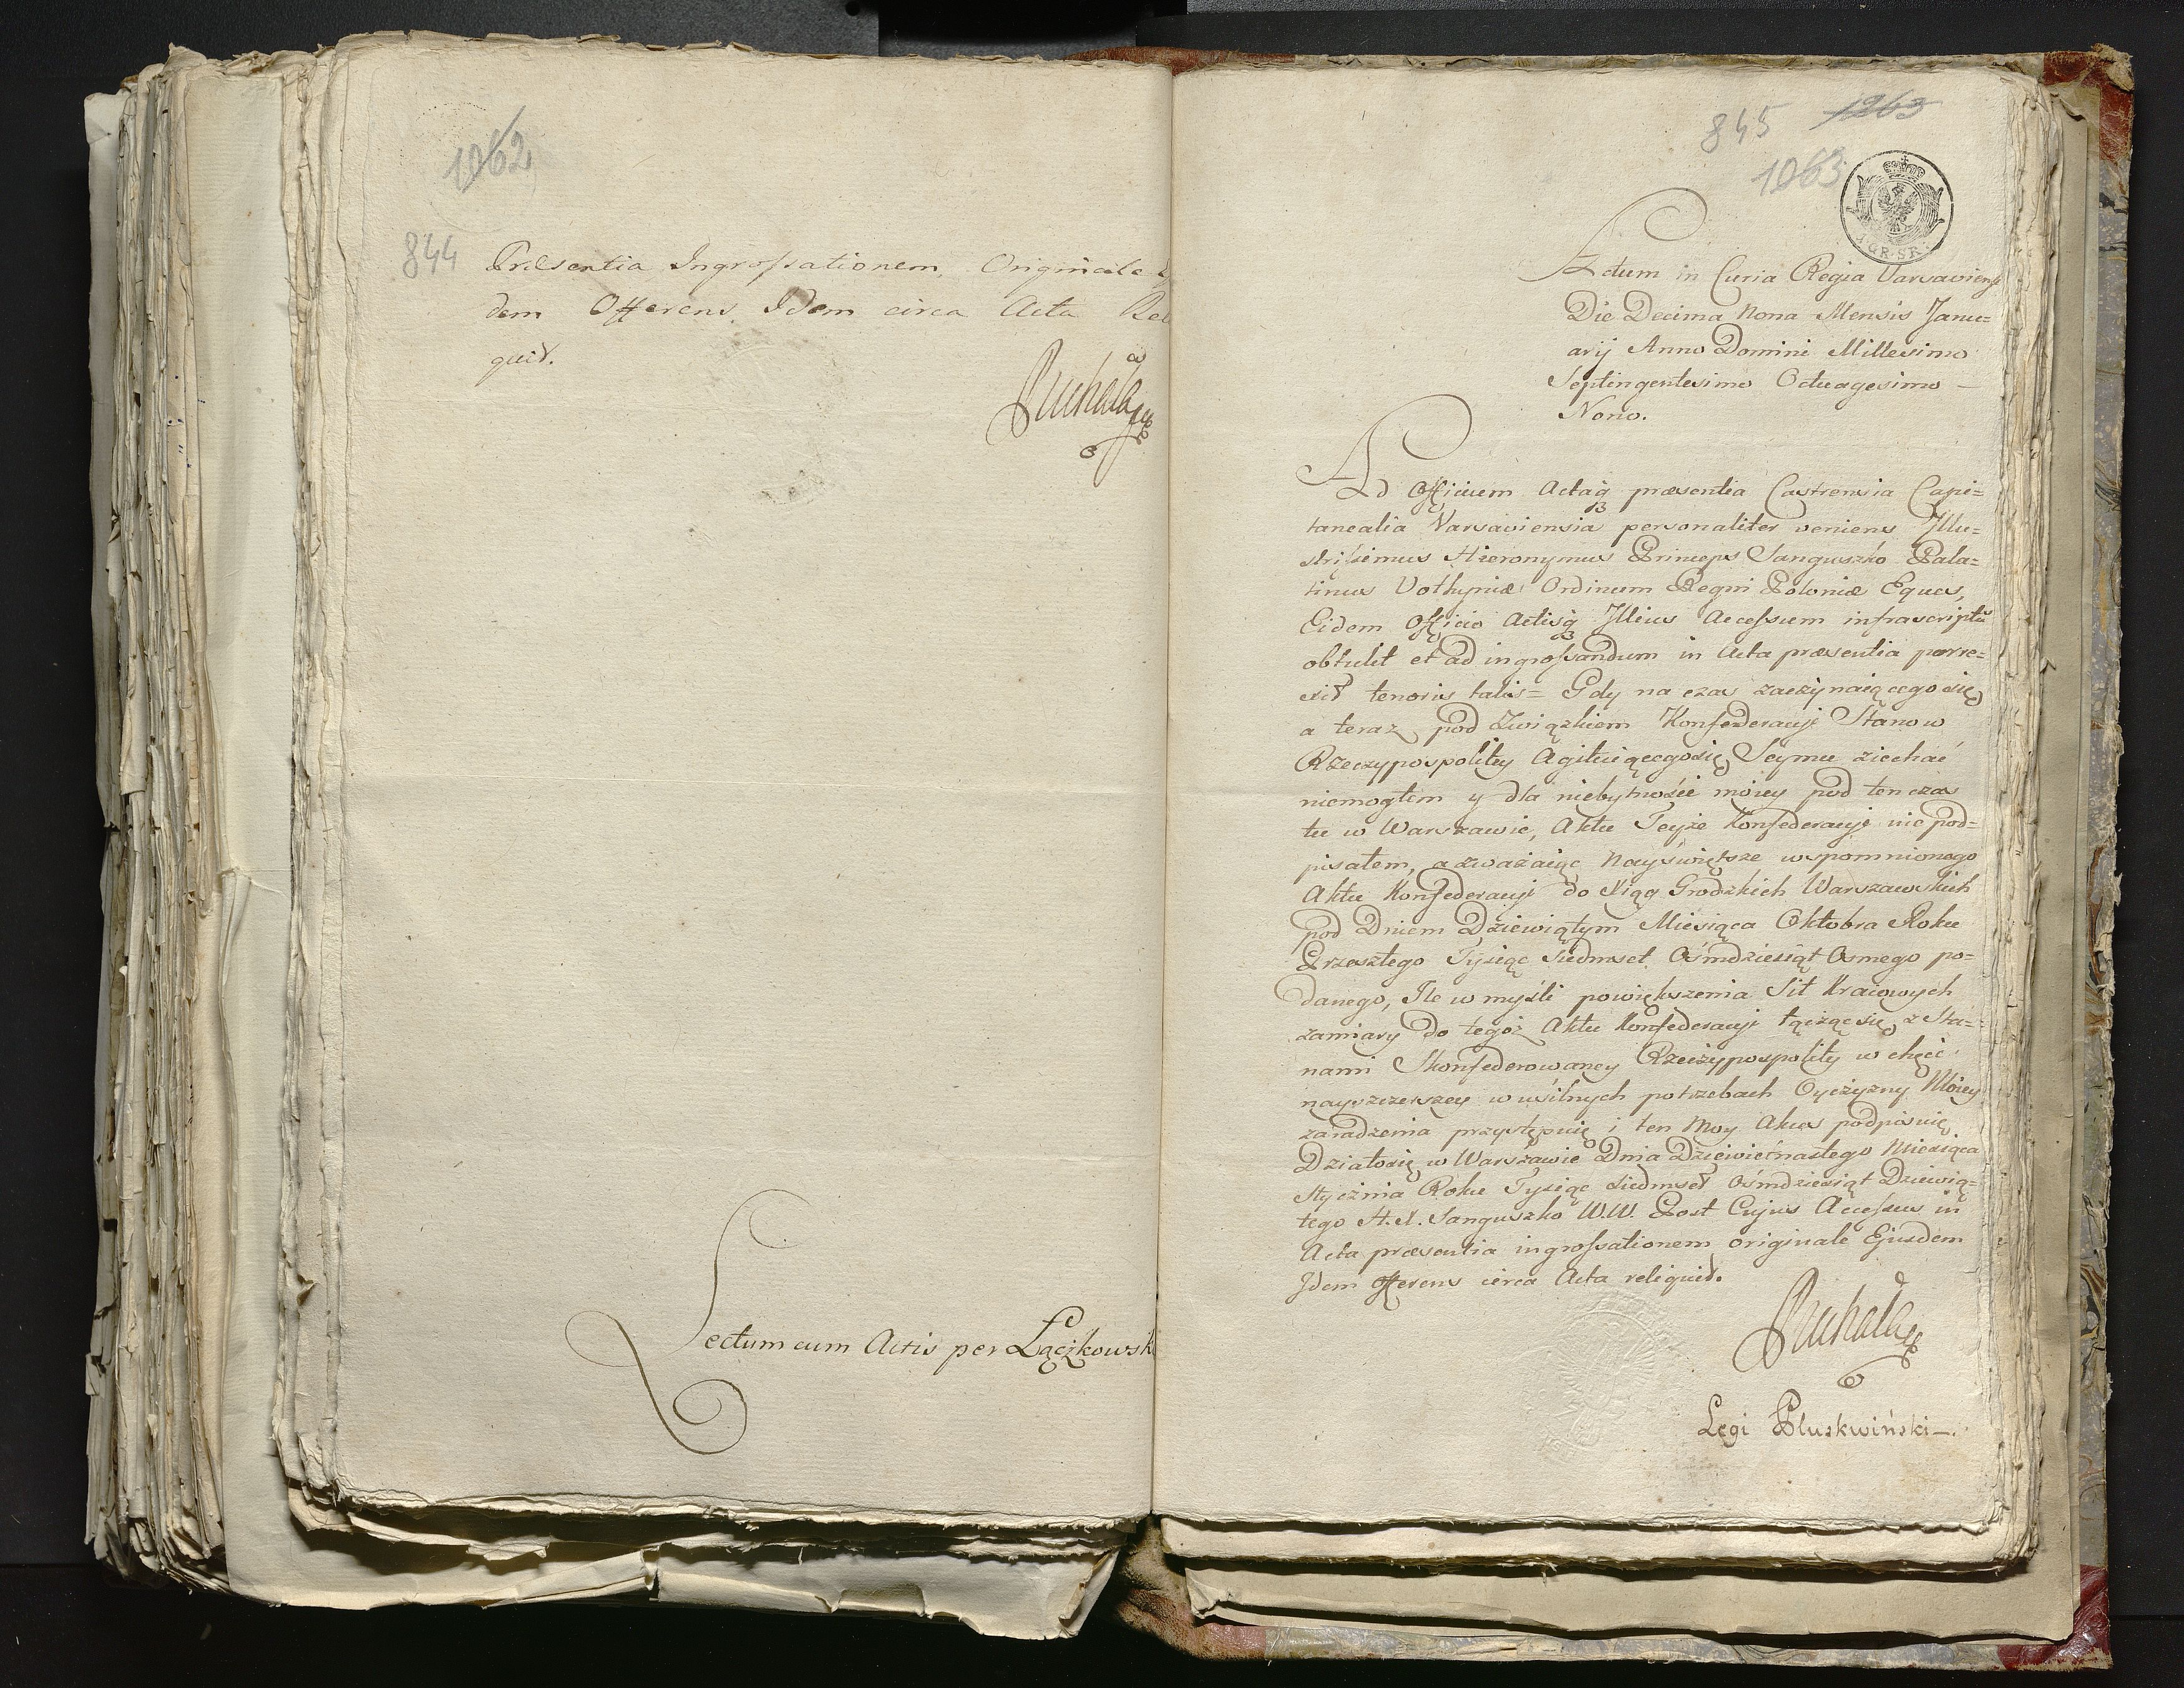 1062
844
Præsentia Ingrossationem, Originale
dem Offerens Idem circa Acta Rel
quit.
Lectum cum Actis per Łączkowsk
845 1263
1063
Actum in Curia Regia Varsaviensi
Die Decima Nona Mensis Janu=
arij Anno Domini Millesimo
Septingentesimo Octuagesimo —
Nono.
Ad Officium Actaq præsentia Castrensia Capi=
tanealia Varsaviensia personaliter veniens Illu=
strissimus Hieronymus Princeps Sanguszko Pala=
tinus Volhyniæ Ordinum Regni Poloniæ Eques,
Eidem Officio Actisq Illius Accessum infrascriptũ
obtulit et ad ingrossandum in Acta præsentia porre=
xit tenoris talis= Gdy na czas zaczynaiącego się
a teraz pod Związkiem Konfederacyi Stanow
Rzeczypospolitey Agituiącego się Seymu ziechać
niemogłem y dla niebytności moiey pod ten czas
tu w Warszawie, Aktu Teyże Konfederacyi nie pod=
pisałem, a zważaiąc Nayświętsze wspomnionego
Aktu Konfederacyi do Xiąg Grodzkich Warszawskich
pod Dniem Dziewiątym Miesiąca Oktobra Roku
Przeszłego Tysiąc Siedmset Ośmdziesiąt Osmego po=
danego, Ile w myśli powiększenia Sił Kraiowych
zamiary do tegoż Aktu Konfederacyi łącząc się z Sta=
nami Skonfederowaney Rzeczypospolitey w chęci
nayszczerszey w usilnych potrzebach Oyczyzny Moiey
zaradzenia przystępuię i ten Moy Akces podpisuię
Działosię w Warszawie Dnia Dziewietnastego Miesiąca
Stycznia Roku Tysiąc Siedmset Ośmdziesiąt Dziewią=
tego H. X. Sanguszko W.W. Post Cujus Accessus in
Acta præsentia ingrossationem originale Ejusdem
Idem offerens circa Acta reliquit.
Legi Pluskwiński —.